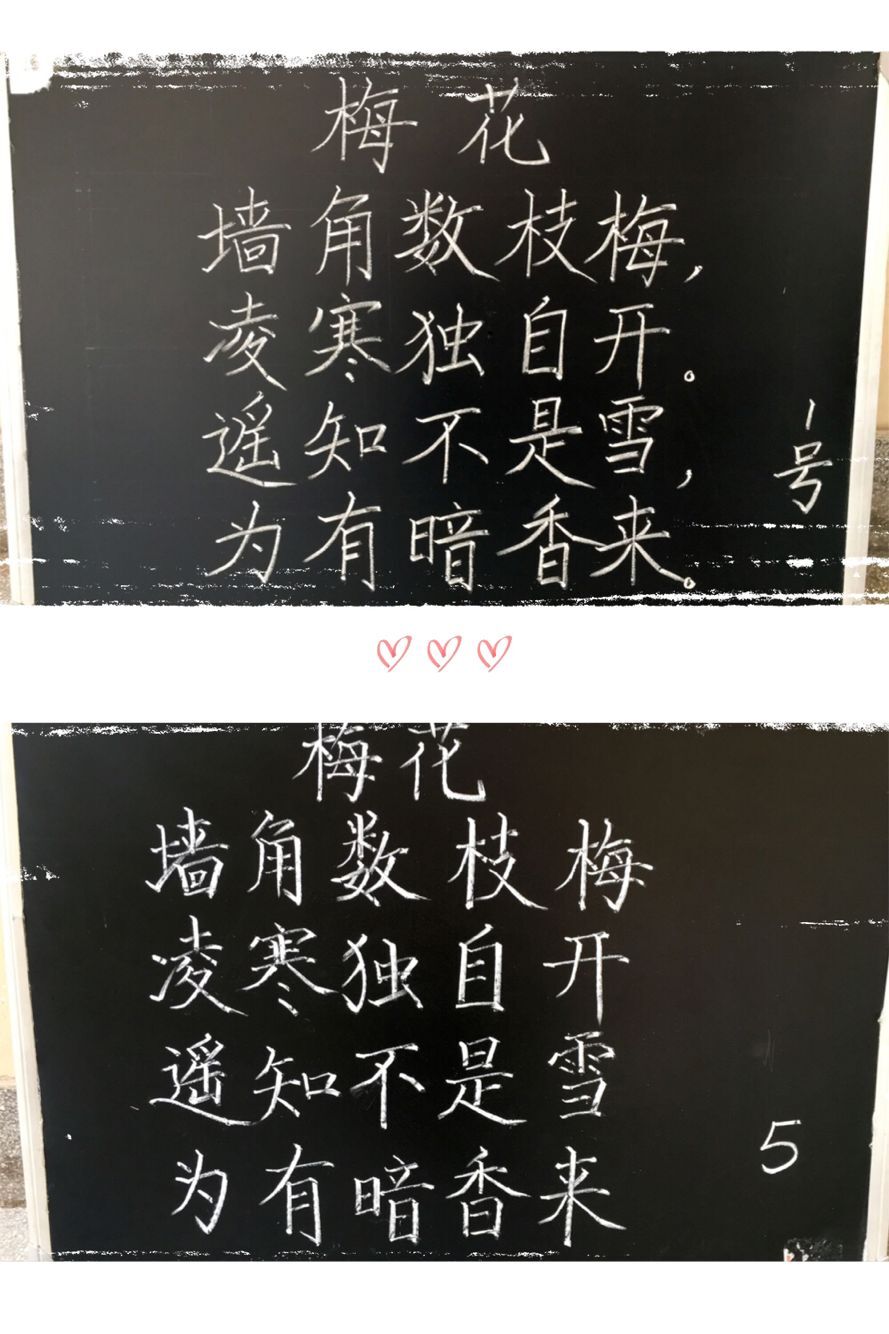 梅花
墙角数枝梅，
凌寒独自开。
遥知不是雪，
为有暗香来。
1号
梅花
墙角数枝梅
凌寒独自开
遥知不是雪
为有暗香来
5